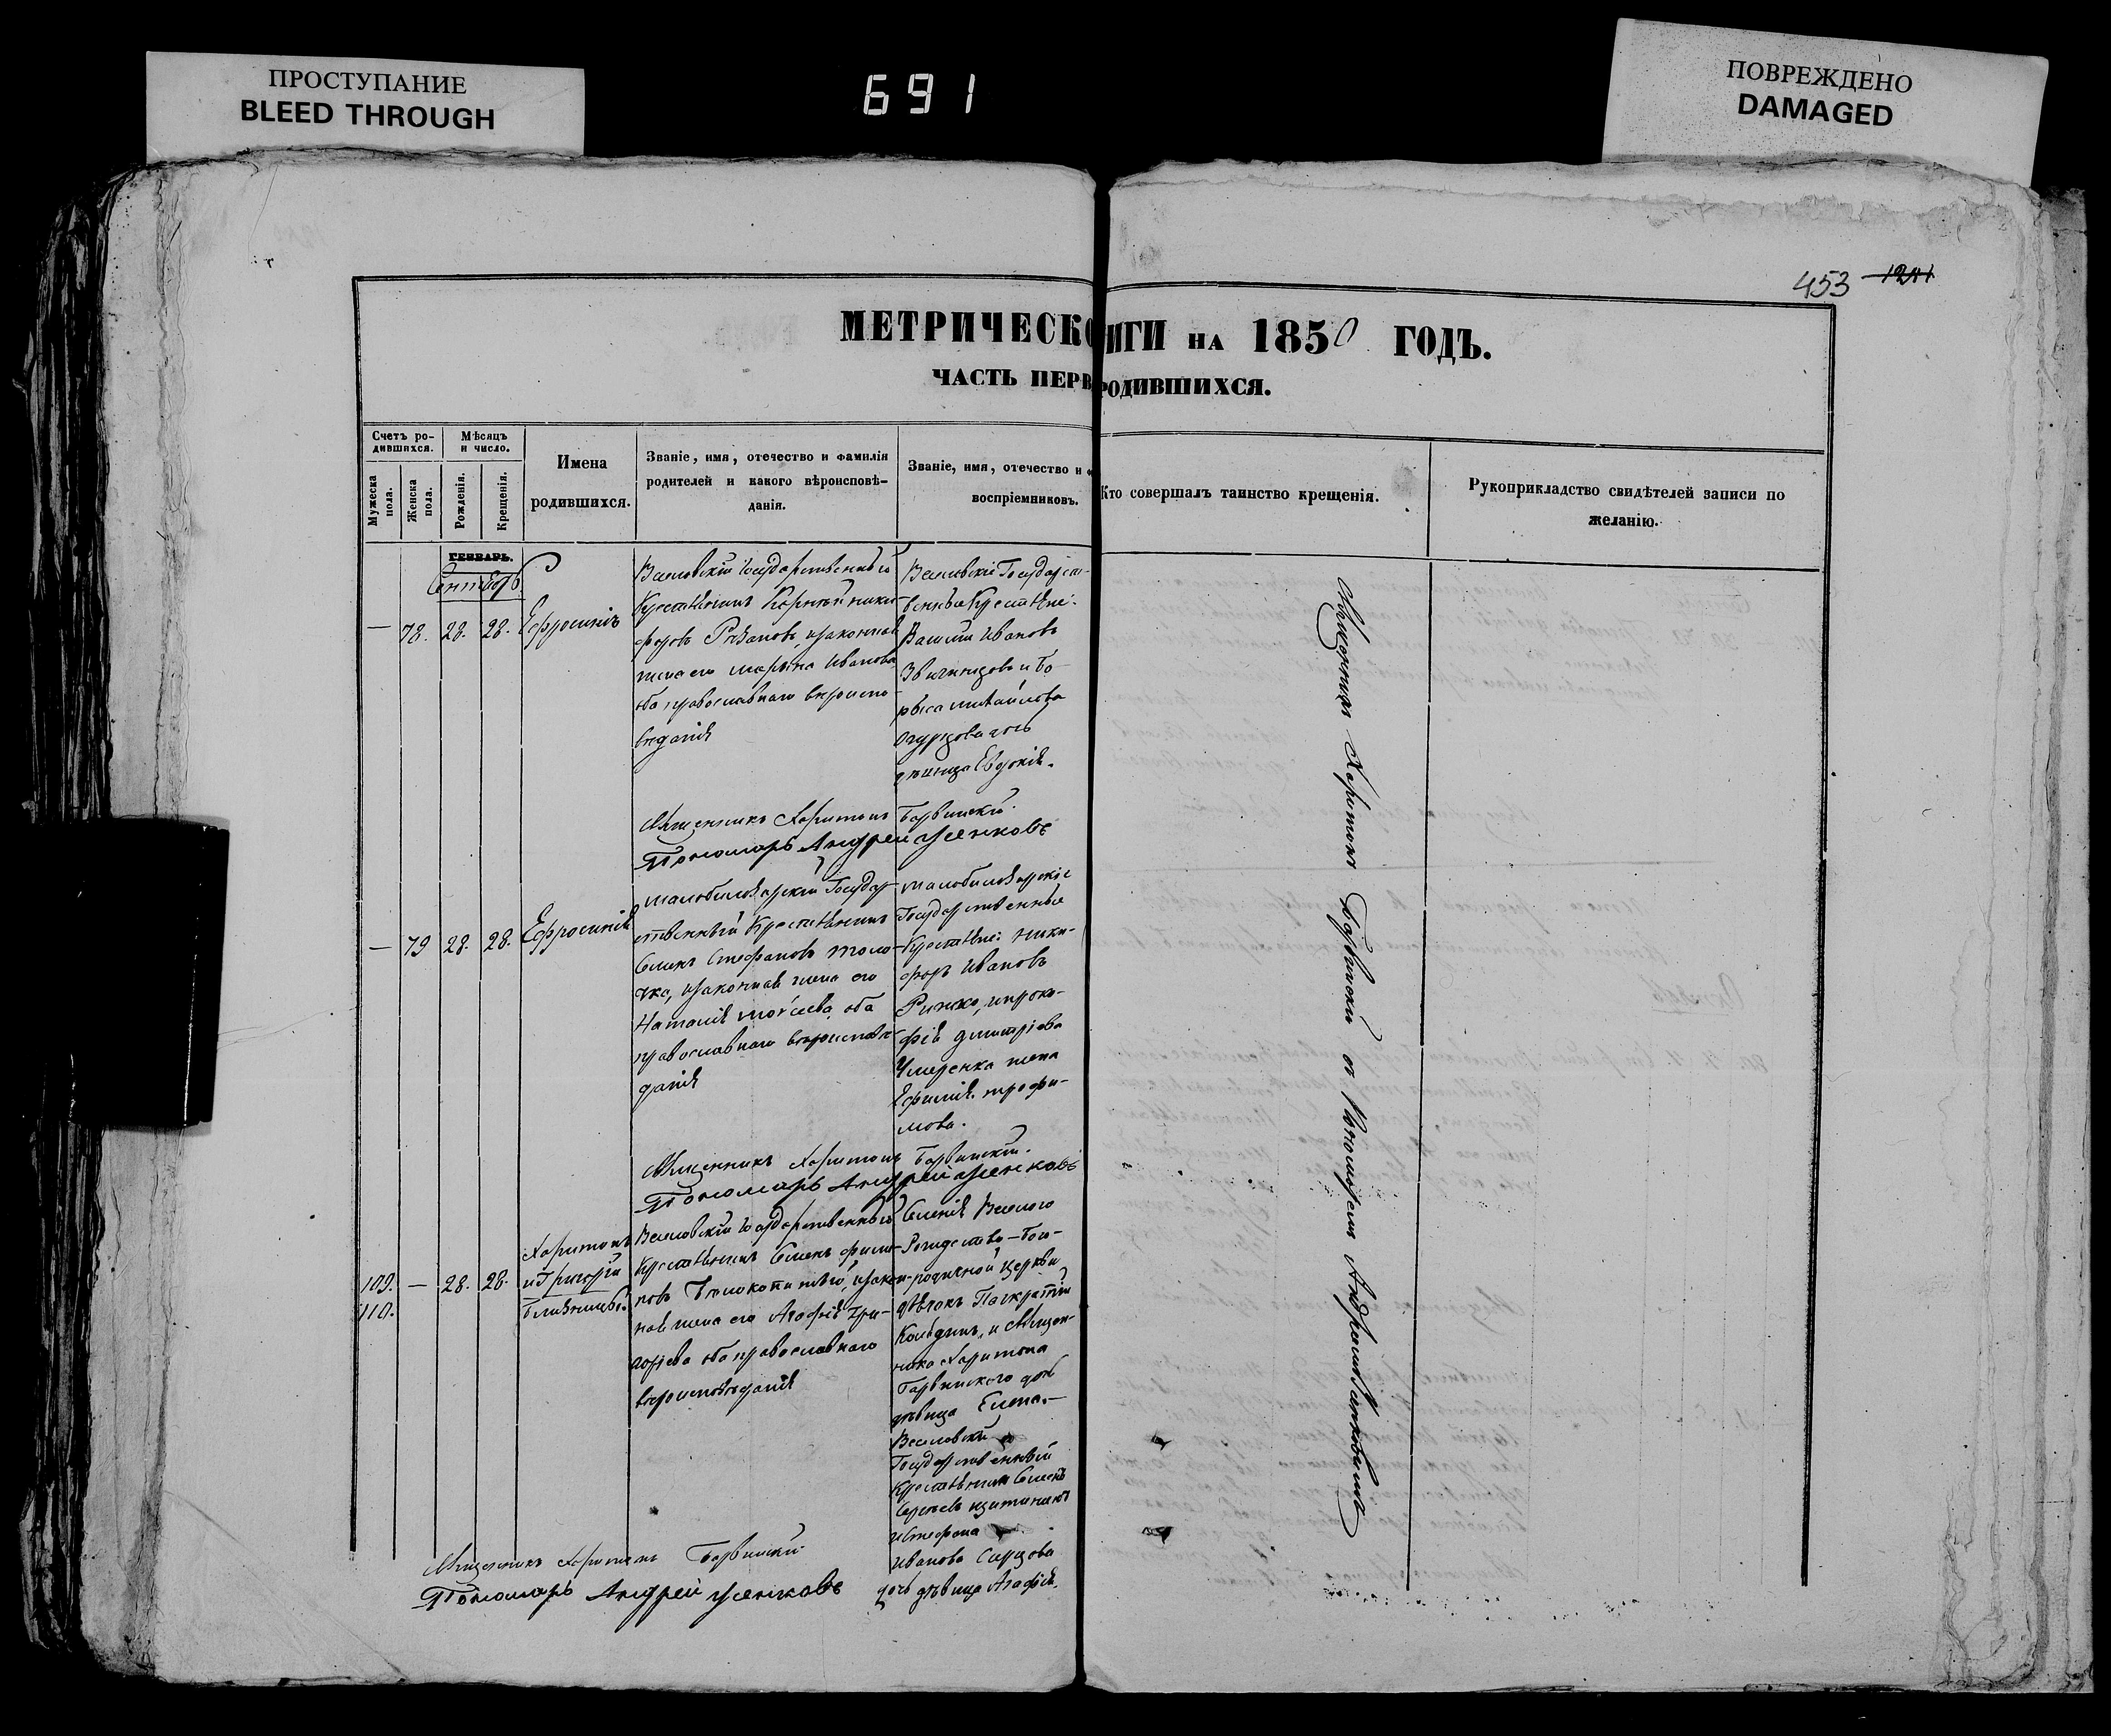 ПРОСТУПАНИЕ
BLEED THROUGH
691
ПОВРЕЖДЕНО
DAMAGED
453 1241
МЕТРИЧЕСКО ИГИ НА 1850 ГОДЪ.
ЧАСТЬ ПЕРВ РОДИВШИХСЯ.
Счетъ ро-
дившихся.
Мужеска
пола.
Женска
пола.
Мѣсяцъ
и число.
Рожденія.
Крещенія.
Имена
родившихся.
Званіе, имя, отечество и фамилія
родителей и какого вѣроисповѣ-
данія.
Званіе, имя, отечество и ф
воспріемниковъ.
Кто совершалъ таинство крещенія.
Рукоприкладство свидѣтелей записи по
желанію.
ГЕНВАРЬ.
Сентябрь
— 78. 28. 28. Ефросинія
Веселовскій Государственный
Крестьянинъ Корнѣй Ники-
форовъ Рязановъ, изаконная
жена его Марѣна Иванова
оба православнаго вѣроиспо-
вѣданія
Веселовскіе Государст-
венные Крестьяне:
Василій Ивановъ
и Бо-
риса Михайлова
Огурцова дочь
дѣвица Евдокія.
Священникъ Харитонъ Барвинскій.
Пономарь Андрей Усенковъ
— 79 28. 28. Ефросинія
Государ-
ственный Крестьянинъ
Семенъ Стефановъ Толо-
чка, изаконная жена его
Наталія Моисеева, оба
православнаго вѣроисповѣ-
данія
Государственные
Крестьяне: Ники-
форъ Ивановъ
Рижко, ипроко-
фія Димитріева
жена
Ефимія Трофи-
мова.
Священникъ Харитонъ Барвинскій.
Пономарь Андрей Усенковъ
109. — 28. 28.
110.
Харитонъ
и Григорій
близнецы.
Веселовскій Государственный
Крестьянинъ Семенъ Фили-
повъ изакон-
ная жена его Агафія Гри-
горіева оба православнаго
вѣроисповѣданія
Селенія Веселого
Рождество-Бого-
родичной Церкви
Дьяконъ Панкратій
и Священ-
ника Харитона
Барвинского дочь
дѣвица Елена.—
Веселовскій
Государственный
Крестьянинъ Семенъ
Сергѣевъ
и Стефана
Иванова Сирцова
дочь дѣвица Агафія.
Священникъ Харитонъ Барвинскій
Пономарь Андрей Усенковъ
Священникъ Харитонъ Барвинскій съ Пономаремъ Андреемъ Усенковымъ